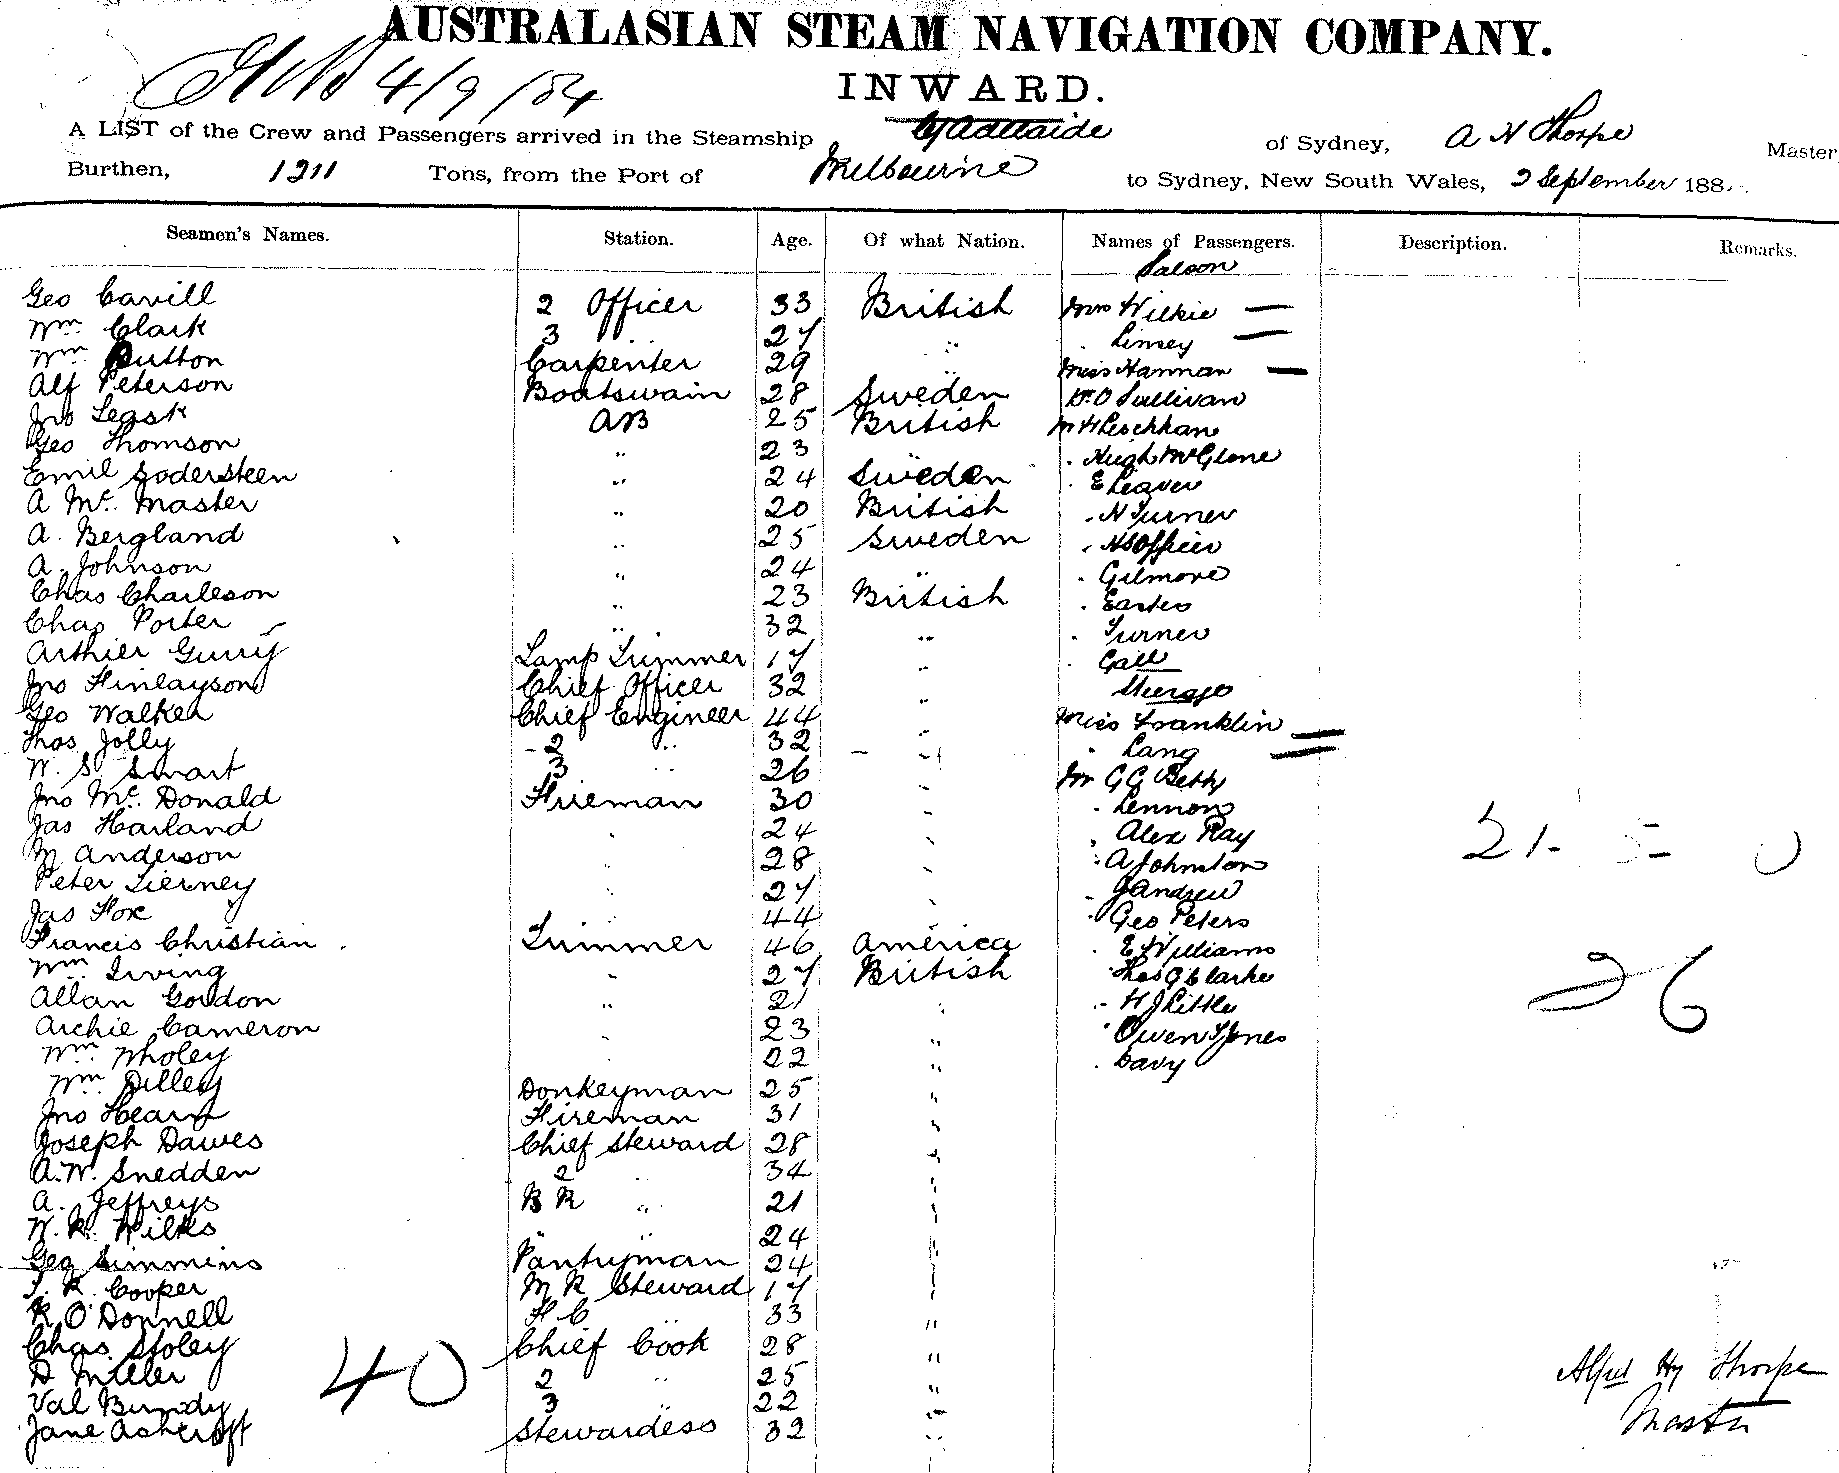 AUSTRALASIAN STEAM NAVIGATION COMPANY.
4/9/84
INWARD.
A LIST of the Crew and Passengers arrived in the Steamship Cy Adelaide of Sydney, A H Thorpe Master
Burthen, 1211 Tons, from the Port of Melbourne to Sydney, New South Wales, 2 September 188
Seamen's Names. Station. Age. Of what Nation. Names of Passengers. Description. Remarks.
Saloon
Geo Cavill 2 Officer 33 British Mrs Wilkie —
Wm Clark 3 " 27 " " Linsey —
Wm Button Carpenter 29 " Miss Hannan —
Alf Peterson Boatswain 28 Sweden Dr O Sullivan
Jno Leask AB 25 British
Geo Thomson " 23 " " Hugh McGlone
Emil Sodersteen " 24 Sweden " E Leaver
A Mc Master " 20 British " N Turner
A. Bergland " 25 Sweden " Officer
A. Johnson " 24 " " Gilmore
Chas Charleson " 23 British "
Chas Porter " 32 " " Turner
Arthier Gurry Lamp Trimmer 17 " " Gall
Jno Finlayson Chief Officer 32 "
Geo Walker Chief Engineer 44 " Miss Franklin —
Thos Jolly 2 " 32 " " Lang —
W. S. Smart 3 " 26 " Mr G G Betty
Jno Mc Donald Fireman 30 " " Lennon
Jas Harland " 24 " " Alex Ray
M Anderson " 28 " " A Johnston
Peter Tierney " 27 " " J Andrew
Jas Fox " 44 " " Geo Peters
Francis Christian Trimmer 46 America " E Williams
Wm Irving " 27 British " Thos G Clarke
Allan Gordon " 21 " " H J Little
Archie Cameron " 23 " " Owen Jones
Wm Wholey " 22 " " Davy
Wm Dilley Donkeyman 25 "
Jno Hearn Fireman 31 "
Joseph Dawes Chief Steward 28 "
A. W. Snedden 2 " 34 "
A. Jeffreys B R " 21 "
W. R. Wilks " 24 "
Geo Simmins Pantryman 24 "
T. R. Cooper M R Steward 17 "
R O'Donnell F C " 33 "
Chas Stoley Chief Cook 28 "
D Miller 2 " 25 "
Val Bundy 3 " 22 "
Jane Ashcroft Stewardess 32 "
40
21 - 5 - 0
26
Alfred Hy Thorpe
Master